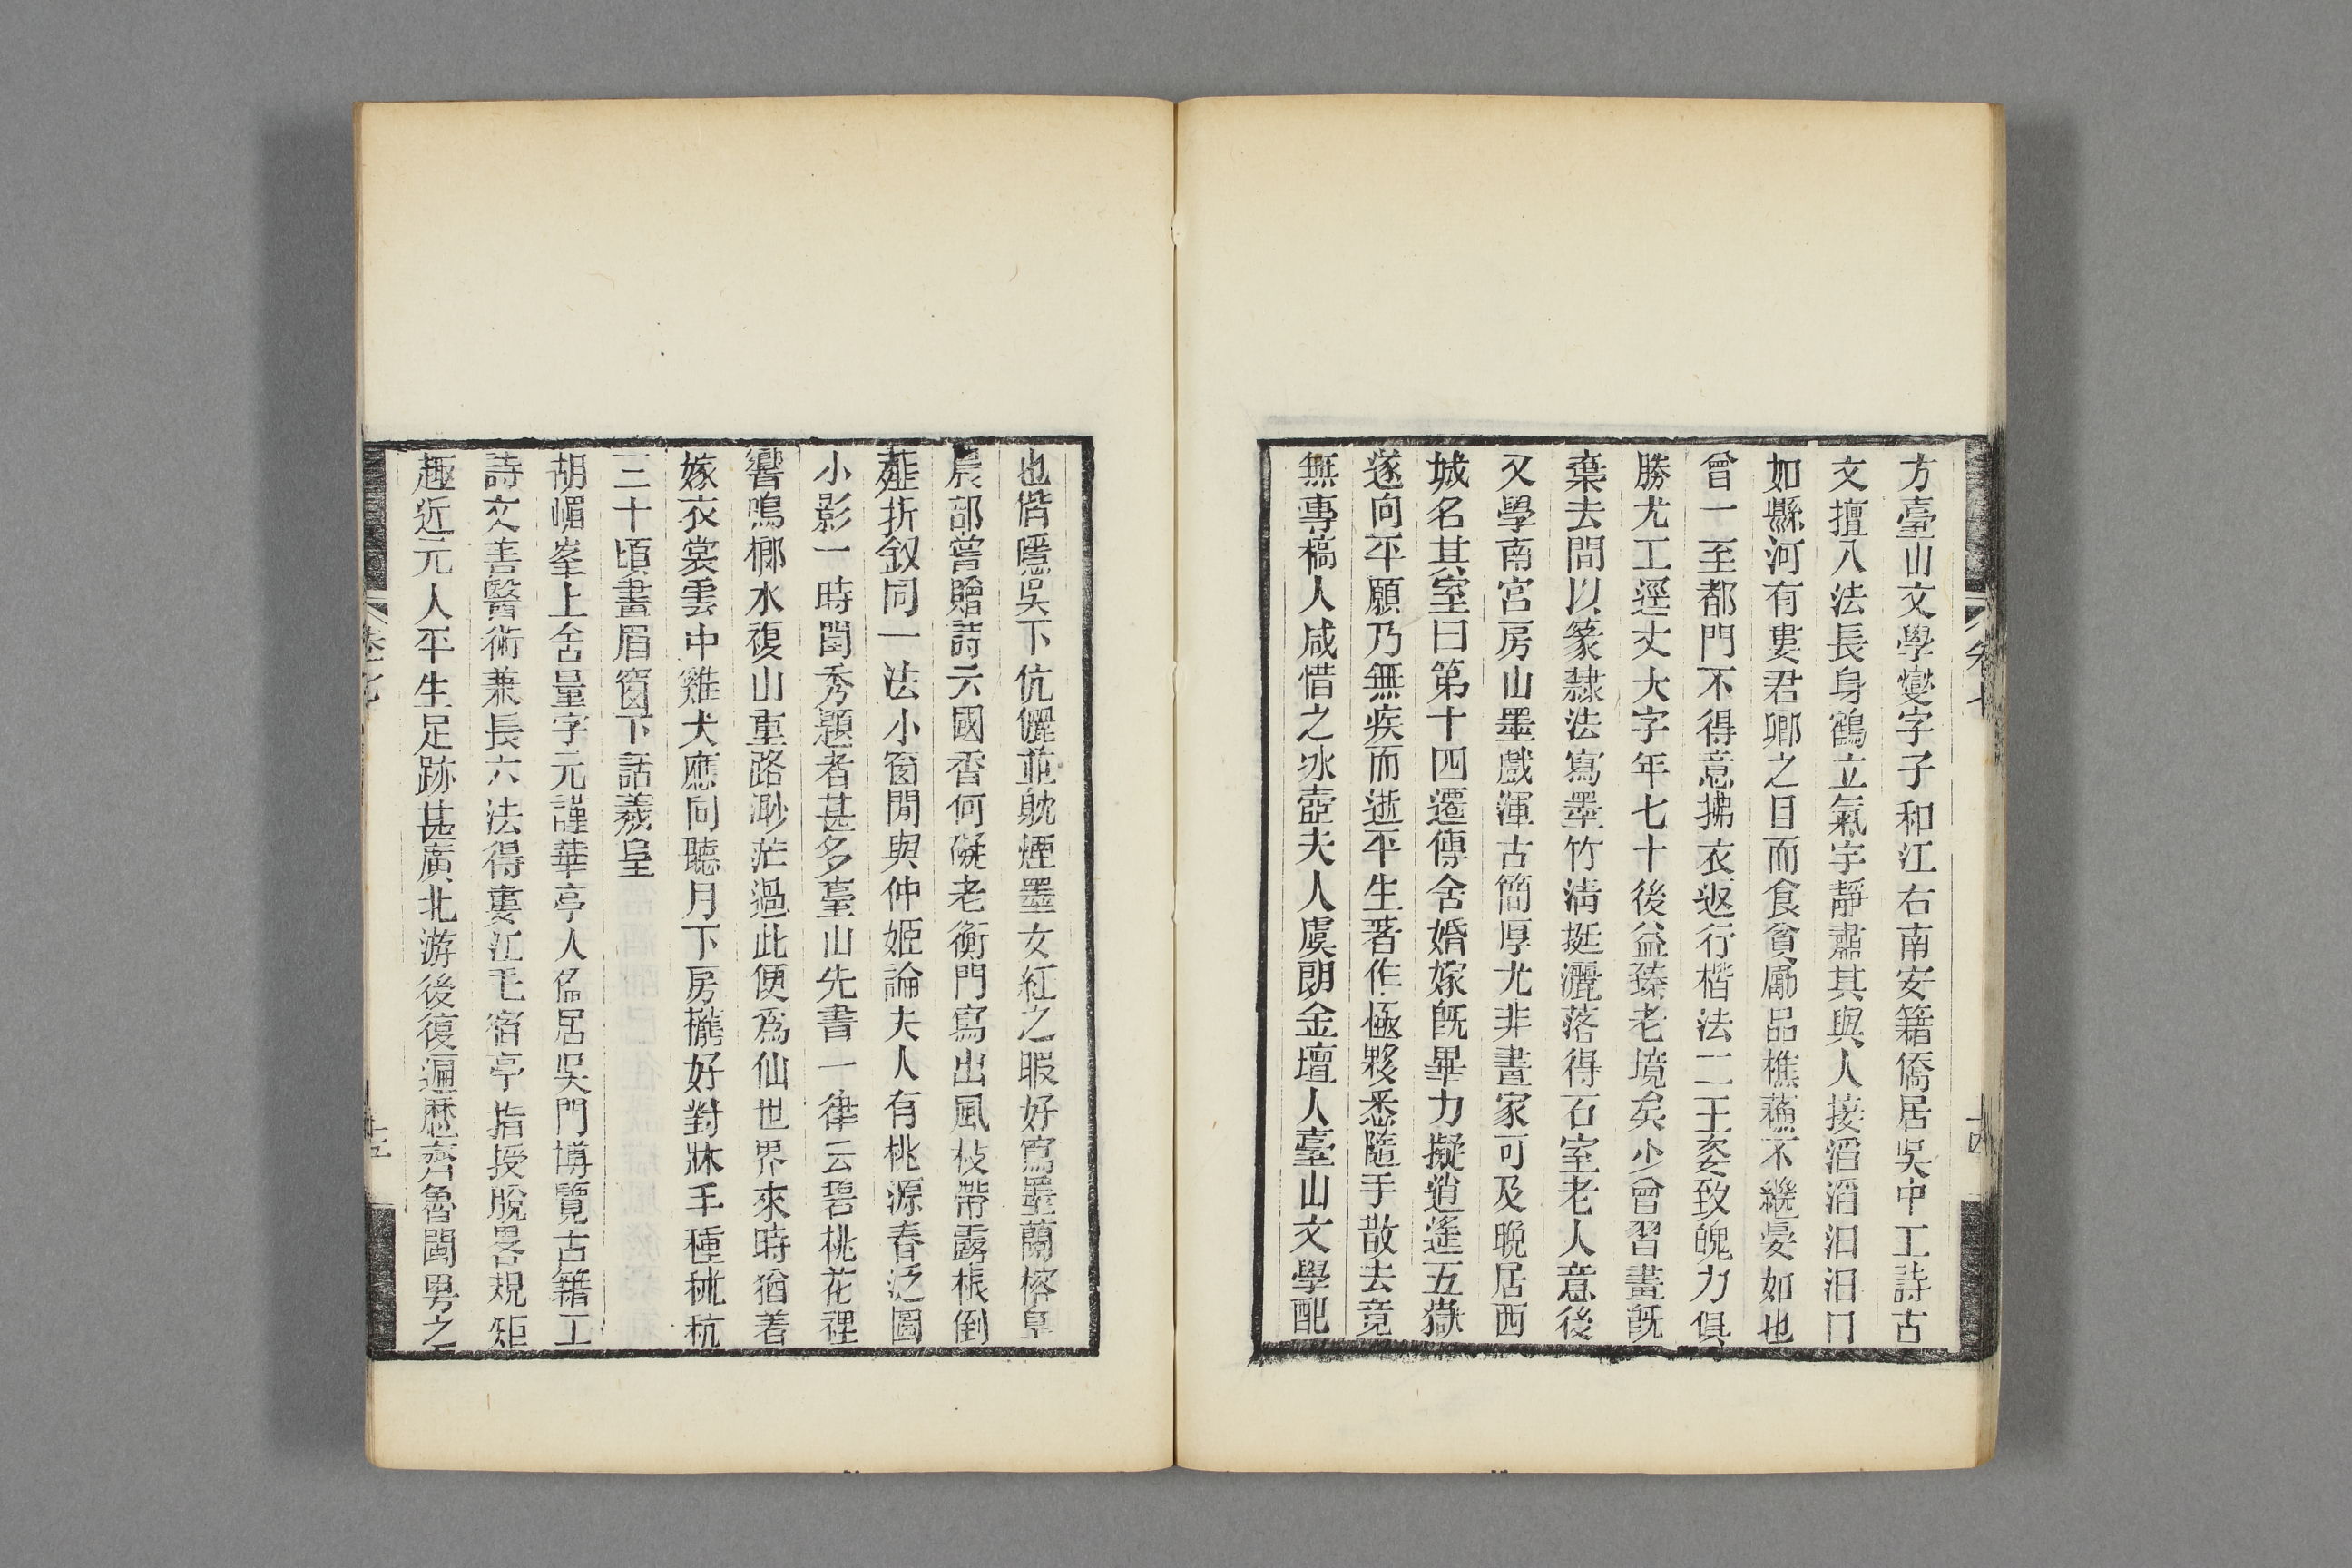 方臺山文學燮字子和江右南安籍僑居吳中工詩古
文擅八法長身鶴立氣宇靜肅其與人接滔滔汩汩口
如懸河有婁君卿之目而食貧勵品樵蘇不繼晏如也
曾一至都門不得意拂衣返行楷法二王姿致魄力俱
勝尤工逕丈大字年七十後益臻老境矣少曾習畫旣
棄去間以篆隸法寫墨竹淸挺灑落得石室老人意後
又學南宮房山墨戲渾古簡厚尤非畫家可及晚居西
城名其室曰第十四遷傳舍婚嫁旣畢力擬逍遙五嶽
遂向平願乃無疾而逝平生著作極夥悉隨手散去竟
無專稿人咸惜之冰壺夫人虞朗金壇人臺山文學配
也偕隱吳下伉儷並躭煙墨女紅之暇好寫墨蘭榕皐
農部嘗贈詩云國香何礙老衡門寫出風枝帶露根倒
薤折釵同一法小窗閒與仲姬論夫人有桃源春泛圖
小影一時閨秀題者甚多臺山先書一律云碧桃花裡
響鳴榔水複山重路渺茫過此便爲仙世界來時猶着
嫁衣裳雲中雞犬應同聽月下房櫳好對牀手種秫秔
三十頃畫眉窗下話羲皇
胡嵋峯上舍量字元謹華亭人僑居吳門博覽古籍工
詩文善醫術兼長六法得婁江毛宿亭指授脫畧規矩
趣近元人平生足跡甚廣北游後復遍歷齊魯閩粤之
卷七
十四
卷七
十五